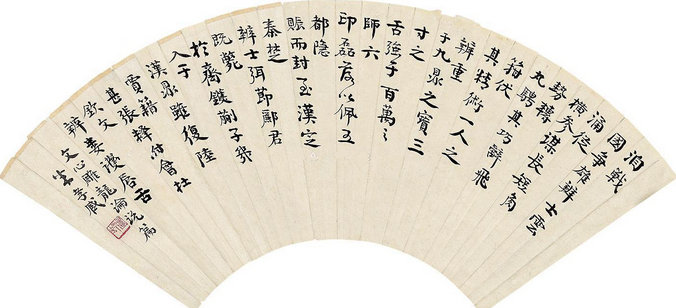 洎戰
國爭雄辨士雲
涌從
橫參謀長短角
勢轉
丸騁其巧辭飛
箝伏
其精術一人之
辨重
于九鼎之寶三
寸之
舌强于百萬之
師六
印磊落以佩五
都隱
賑而封至漢定
秦楚
辨士弭節酈君
既斃
於齊鑊蒯子幾
入乎
漢鼎雖復陸
賈籍
甚張釋付會杜
欽文
辨婁護唇舌
文心雕龍論說篇